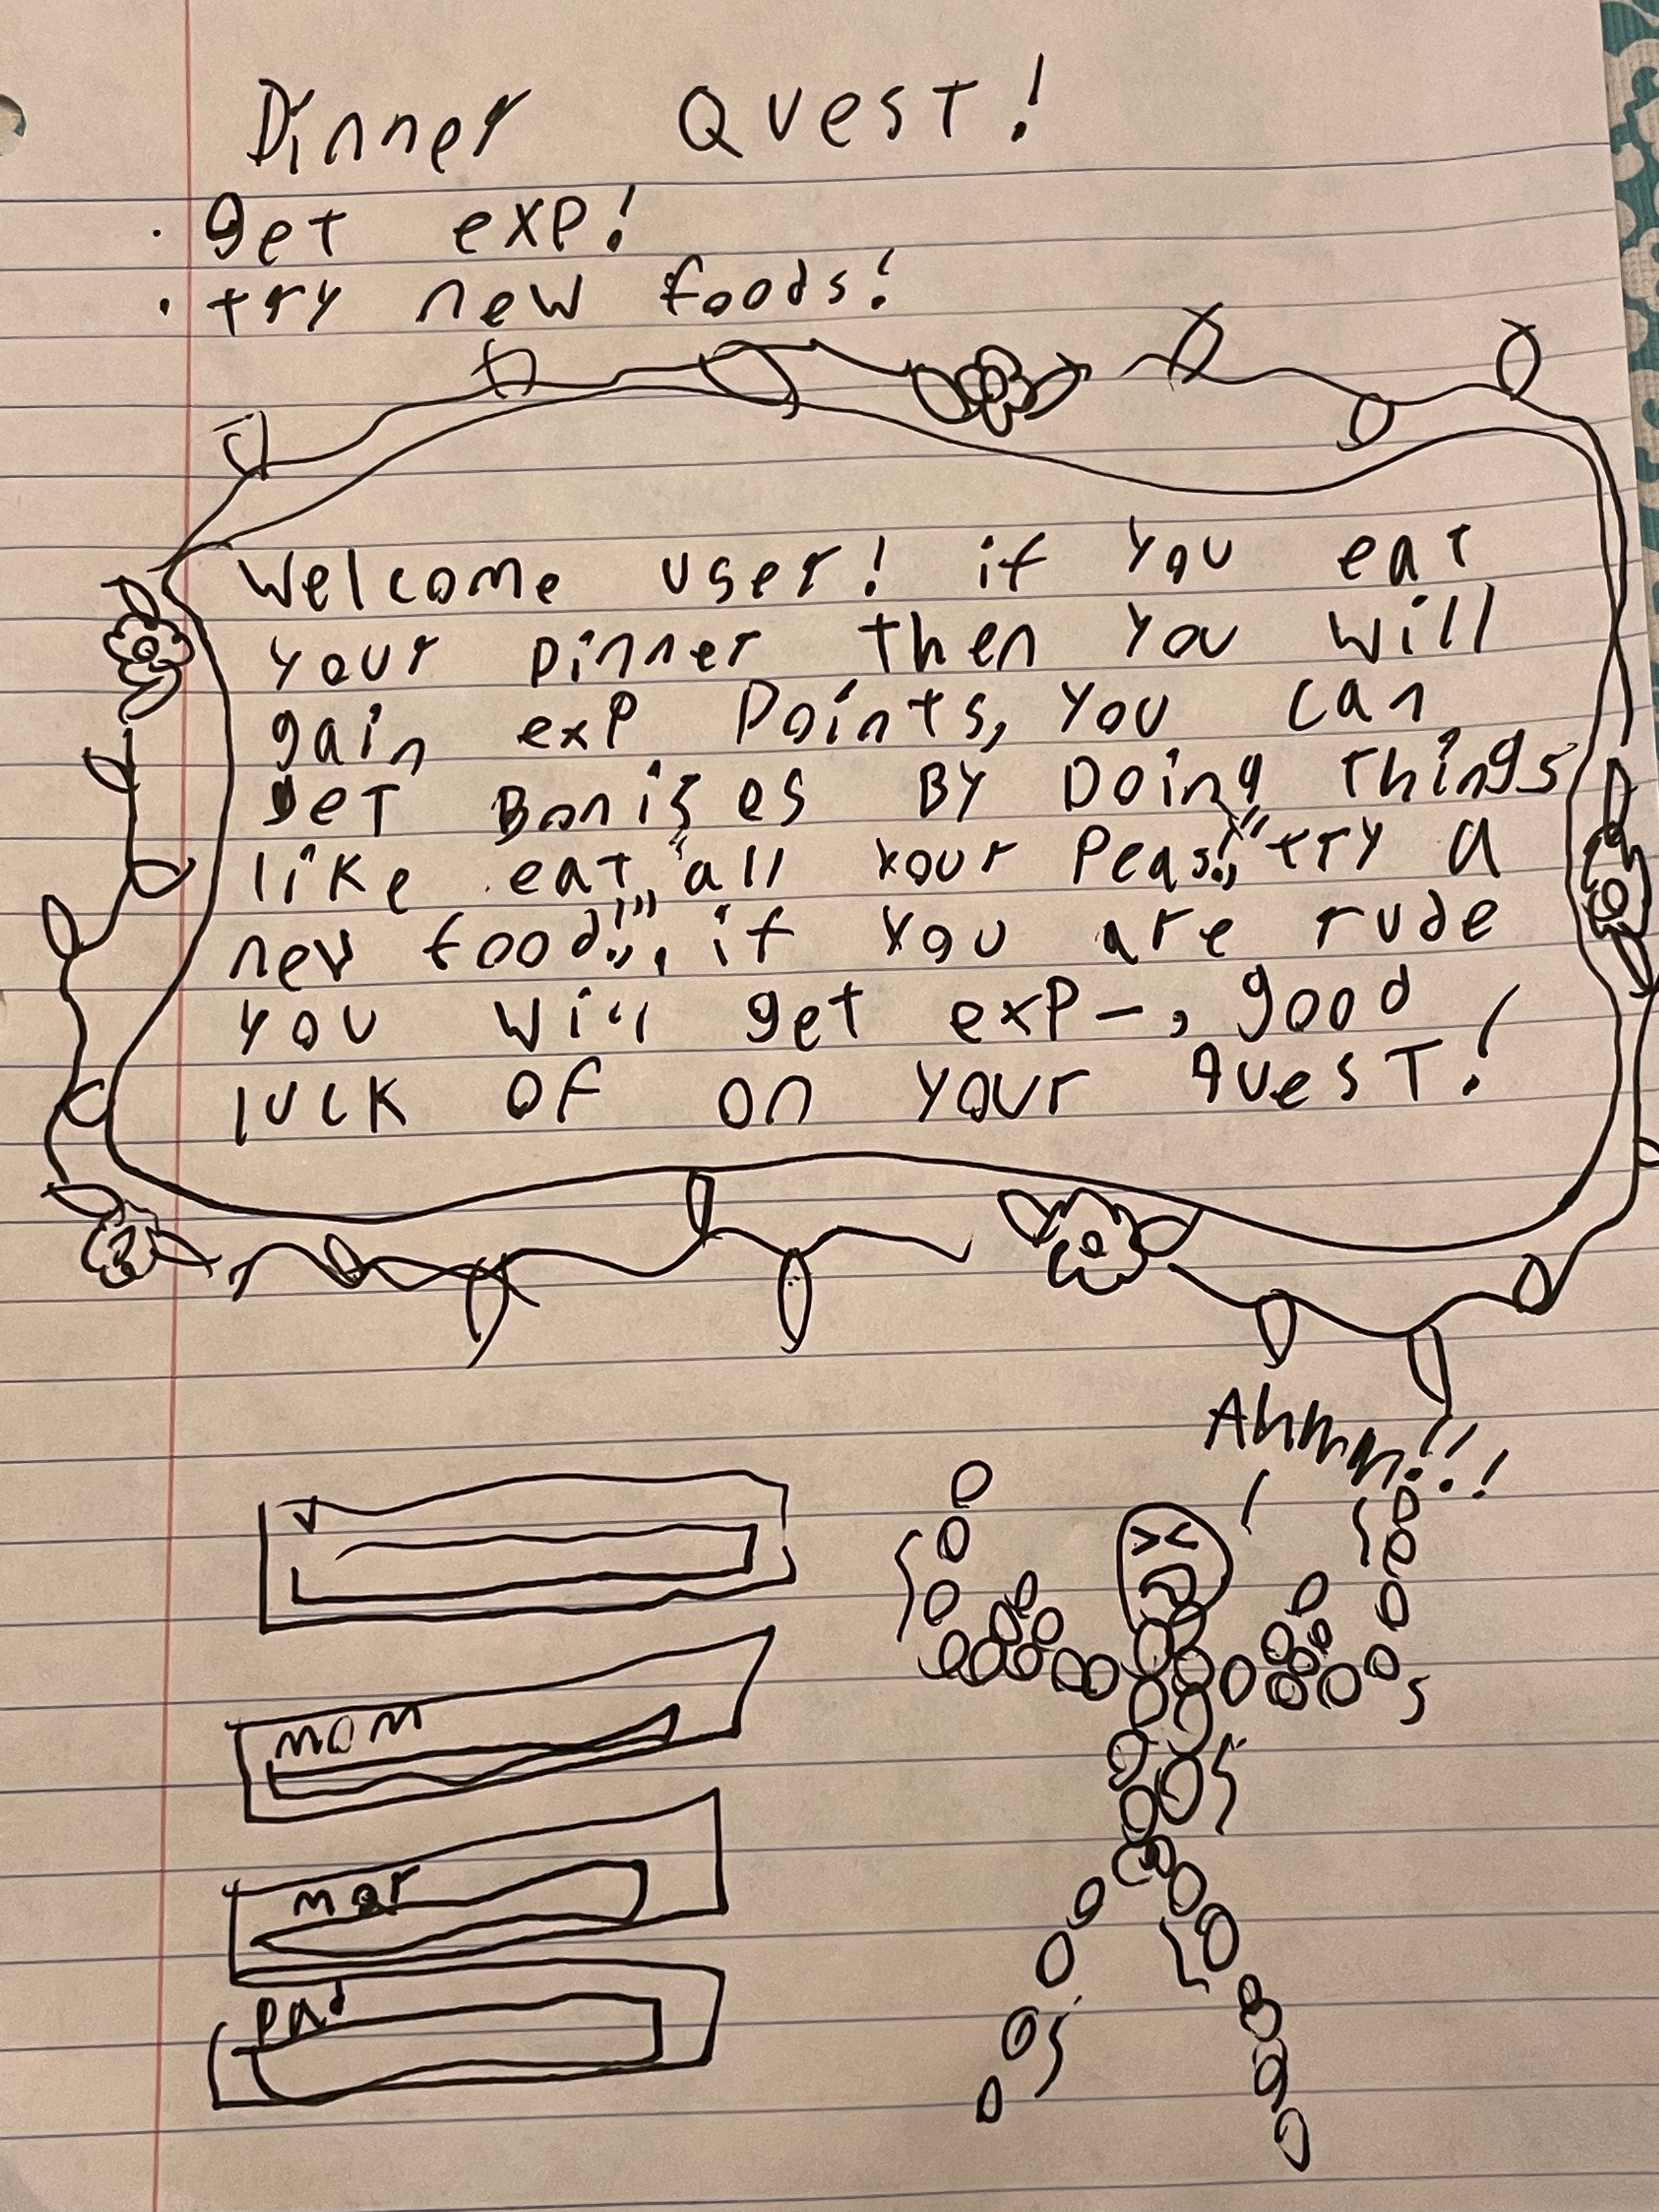 Dinner Quest!
· get exp!
· try new foods!
Welcome user! if you eat
your Dinner then you will
gain exp Points, you can
get Bonises By Doing things
like eat "all your Peas!", "try a
new food!", if you are rude
you will get exp-, good
luck of on your quest!
Ahhhh!!!
V
mom
mar
Dad